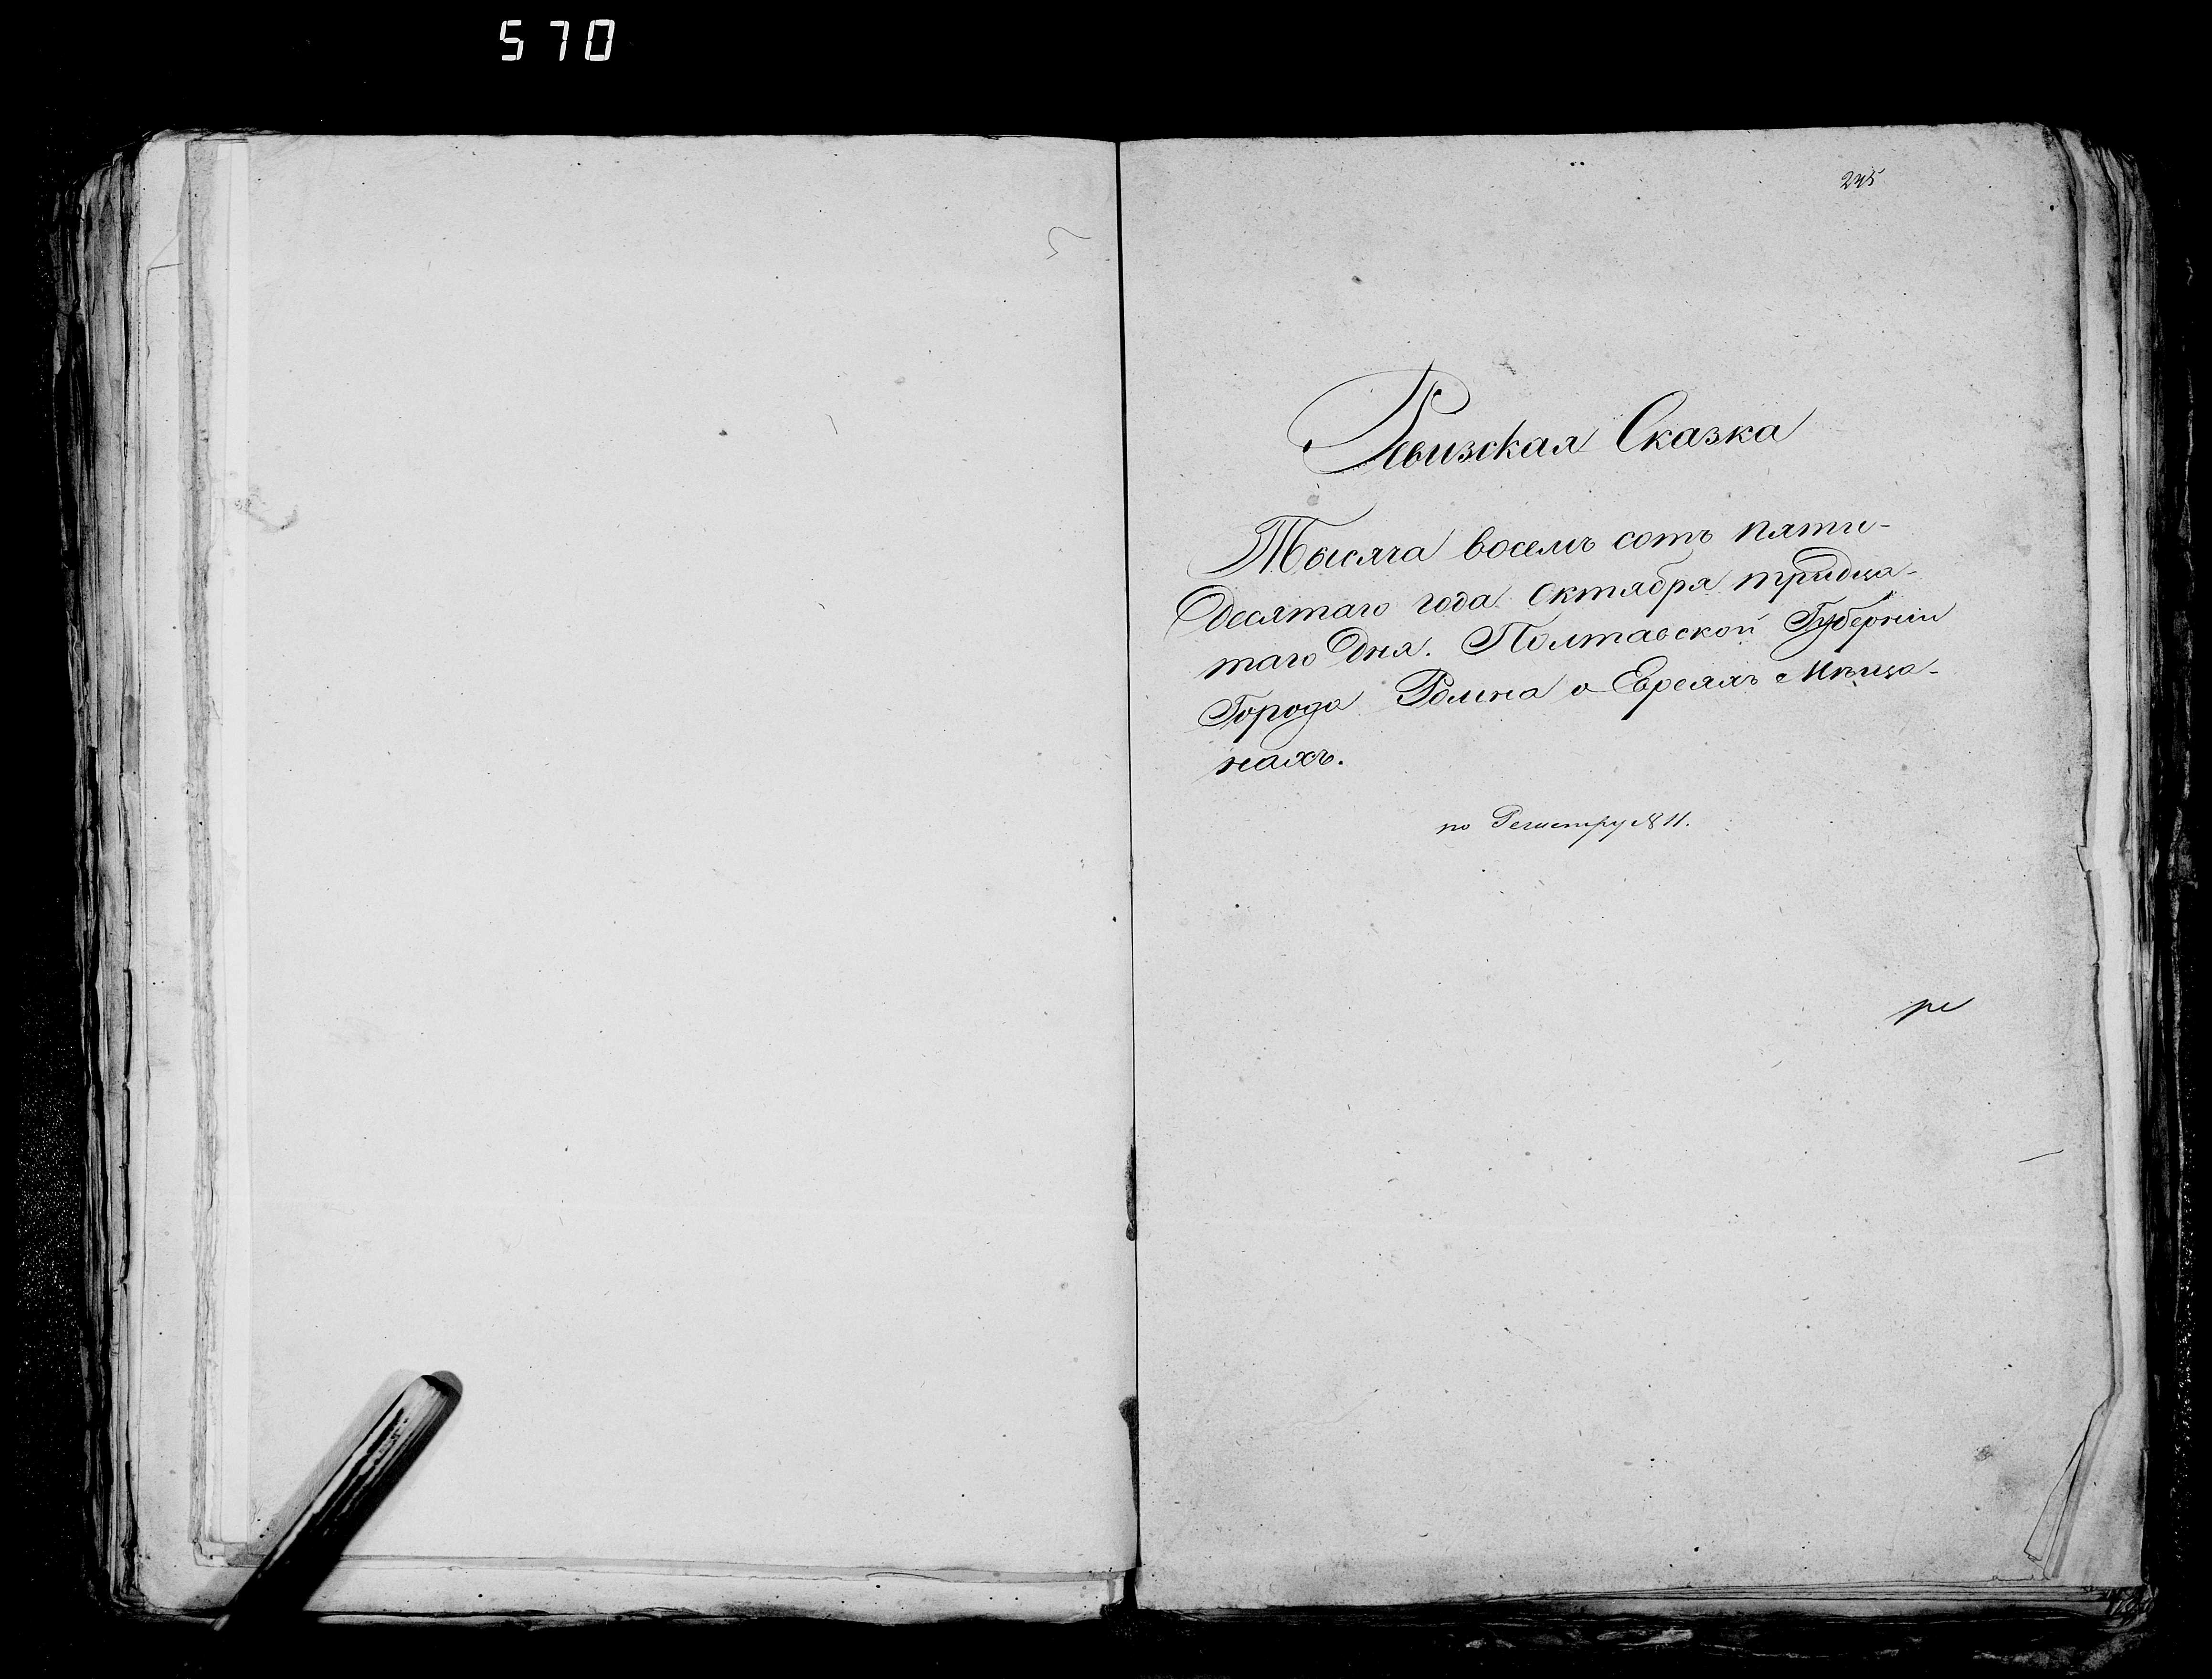 570
245
Ревизская Сказка
Тысяча восемь сотъ пяти-
десятаго года Октября тридца-
таго Дня. Полтавской Губерніи
Города Ромна о Евреяхъ Мѣща-
нахъ.
по Регистру № 11.
ре